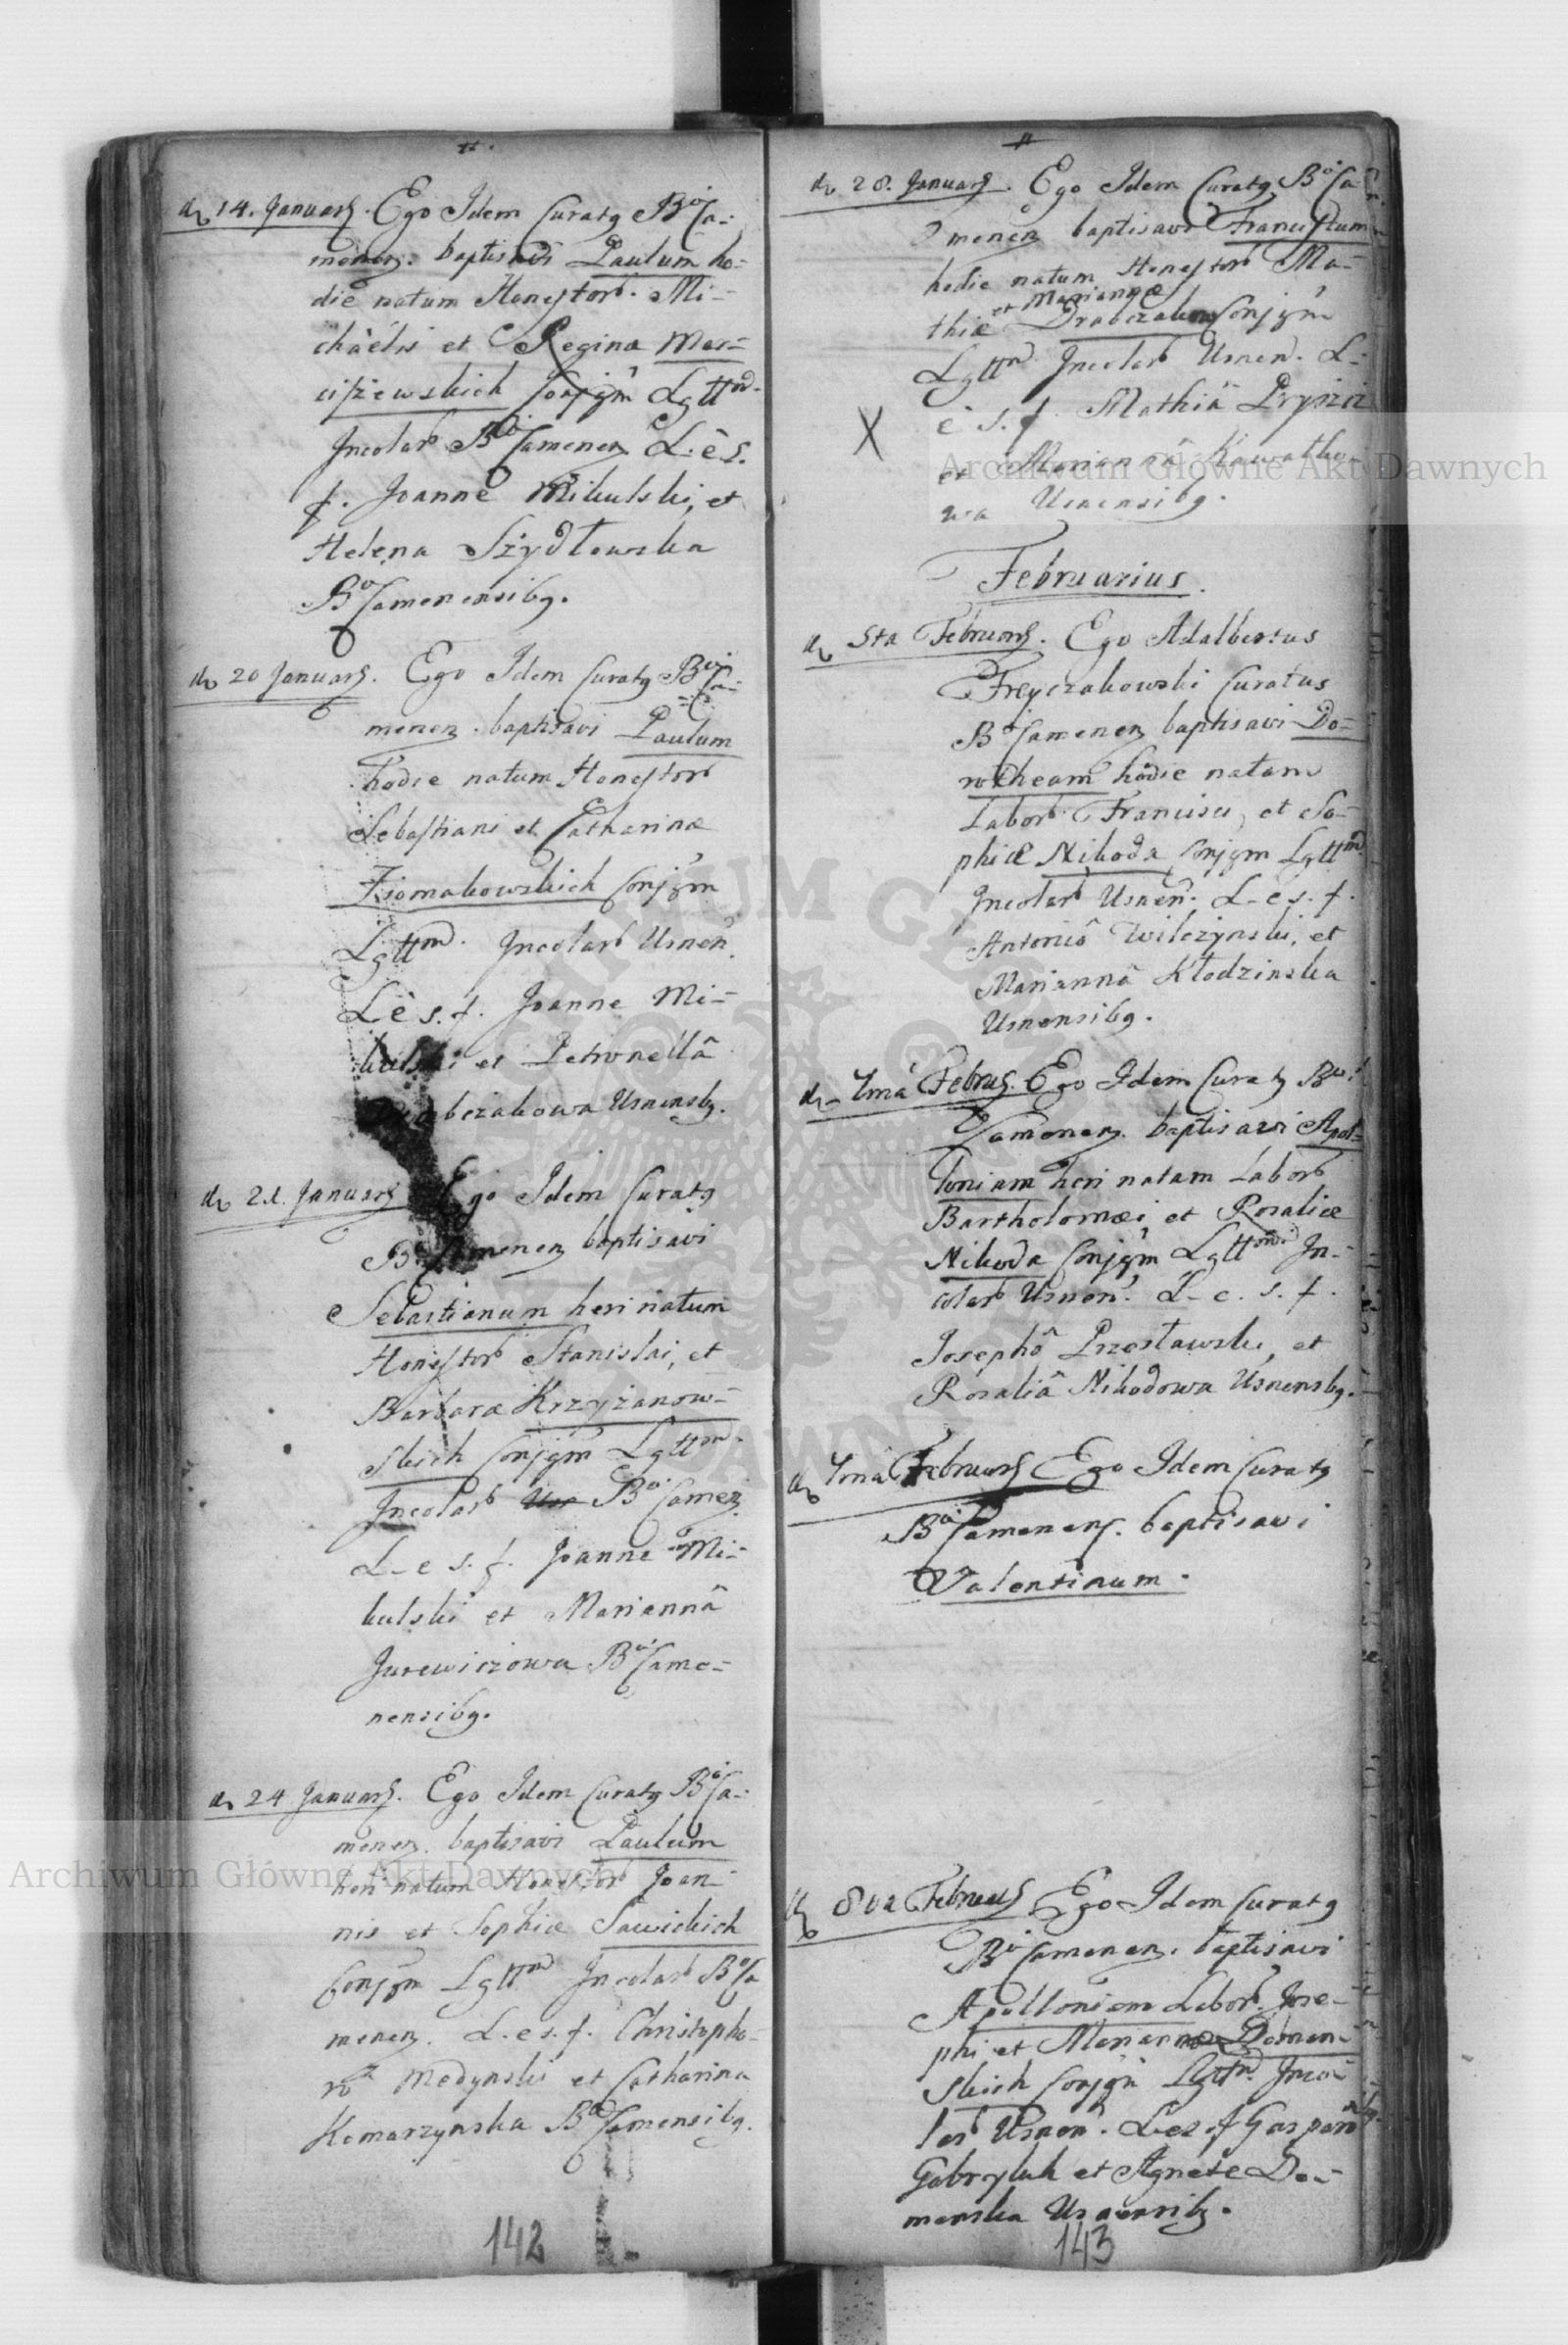 d. 14. Januarij. Ego Idem Curatq Bo Ca=
menen. baptisavi Paulum ho=
die natum Honestor. Mi=
chaelis et Reginæ Mar=
ciszewskich Conjgm Lgttm.
Incolar Boi Camenen L. e s.
f. Joanne Mikulski, et
Helena Szydłowska
Bo Camenensibq.
d. 20 Januarij. Ego Idem Curatq Boi Ca=
menen. baptisavi Paulum
hodie natum Honestor
Sebastiani et Catharinæ
Conjgm
Lgttm. Incolar Usnen.
L e s. f. Joanne Mi=
kulski et Petronellâ
Usnensbq.
d. 21. Januarij Ego Idem Curatq
Camenen baptisavi
Sebastianum heri natum
Honestor Stanislai, et
Barbaræ Krzyżanow=
skich Conjgm Lgttm.
Incolar Usn Boi Camen.
L- e s. f. Joanne Mi=
kulski et Mariannâ
Jurewiczowa Boi Came=
nensibq.
d. 24 Januarij. Ego Idem Curatq Boi Ca=
menen. baptisavi Paulum
heri natum Honestor Joan=
nis et Sophiæ Sawickich
Conjgm Lgttm Incolar Boi Ca
menen. L. e s. f. Christopho=
ro Medynski et Catharina
Komarzynska Bo Camensibq.
142
d. 28. Januarij. Ego Idem Curatq Boi Ca
menen baptisavi Franciscum
hodie natum Honestor Ma=
et Mariannæ
thiæ Drabczakow Conjgm
Lgttm Incolar Usnen. L.
e s. f. Mathiâ
et Mariannâ
wa Usnensibq.
X
Februarius.
d. 5ta Februarij. Ego Adalbertus
Freyczakowski Curatus
Boi Camenen baptisavi Do=
rotheam hodie natam
Labor. Francisci, et So=
phiæ Nikoda Conjgm Lgttm
Incolar Usnen. L- e s. f.
Antoniô Wilczynski, et
Mariannâ Kłodzinska
Usnensibq.
d. 7ma Februarij. Ego Idem Curatq Boi
Camenen. baptisavi Apol=
loniam heri natam Labor
Bartholomæi et Rosaliæ
Nikoda Conjgm Lgttm In=
colar Usnen. L- e. s. f.
Josephô Przesławski, et
Rosaliâ Nikodowa Usnensbq.
d. 7ma Februarij Ego Idem Curatq
Boi Camenens. baptisavi
Valentinum.
d. 8va Februarij Ego Idem Curatq
Boi Camenen. baptisavi
Apolloniam Labor. Jose=
phi et Mariannæ Doman=
skich Conjgm Lgttm. Inco=
lar Usnen. L- e s f Gasparô
Gabryluk et Agnete Do=
manska Usnensibq.
143
Archiwum Główne Akt Dawnych
Archiwum Główne Akt Dawnych